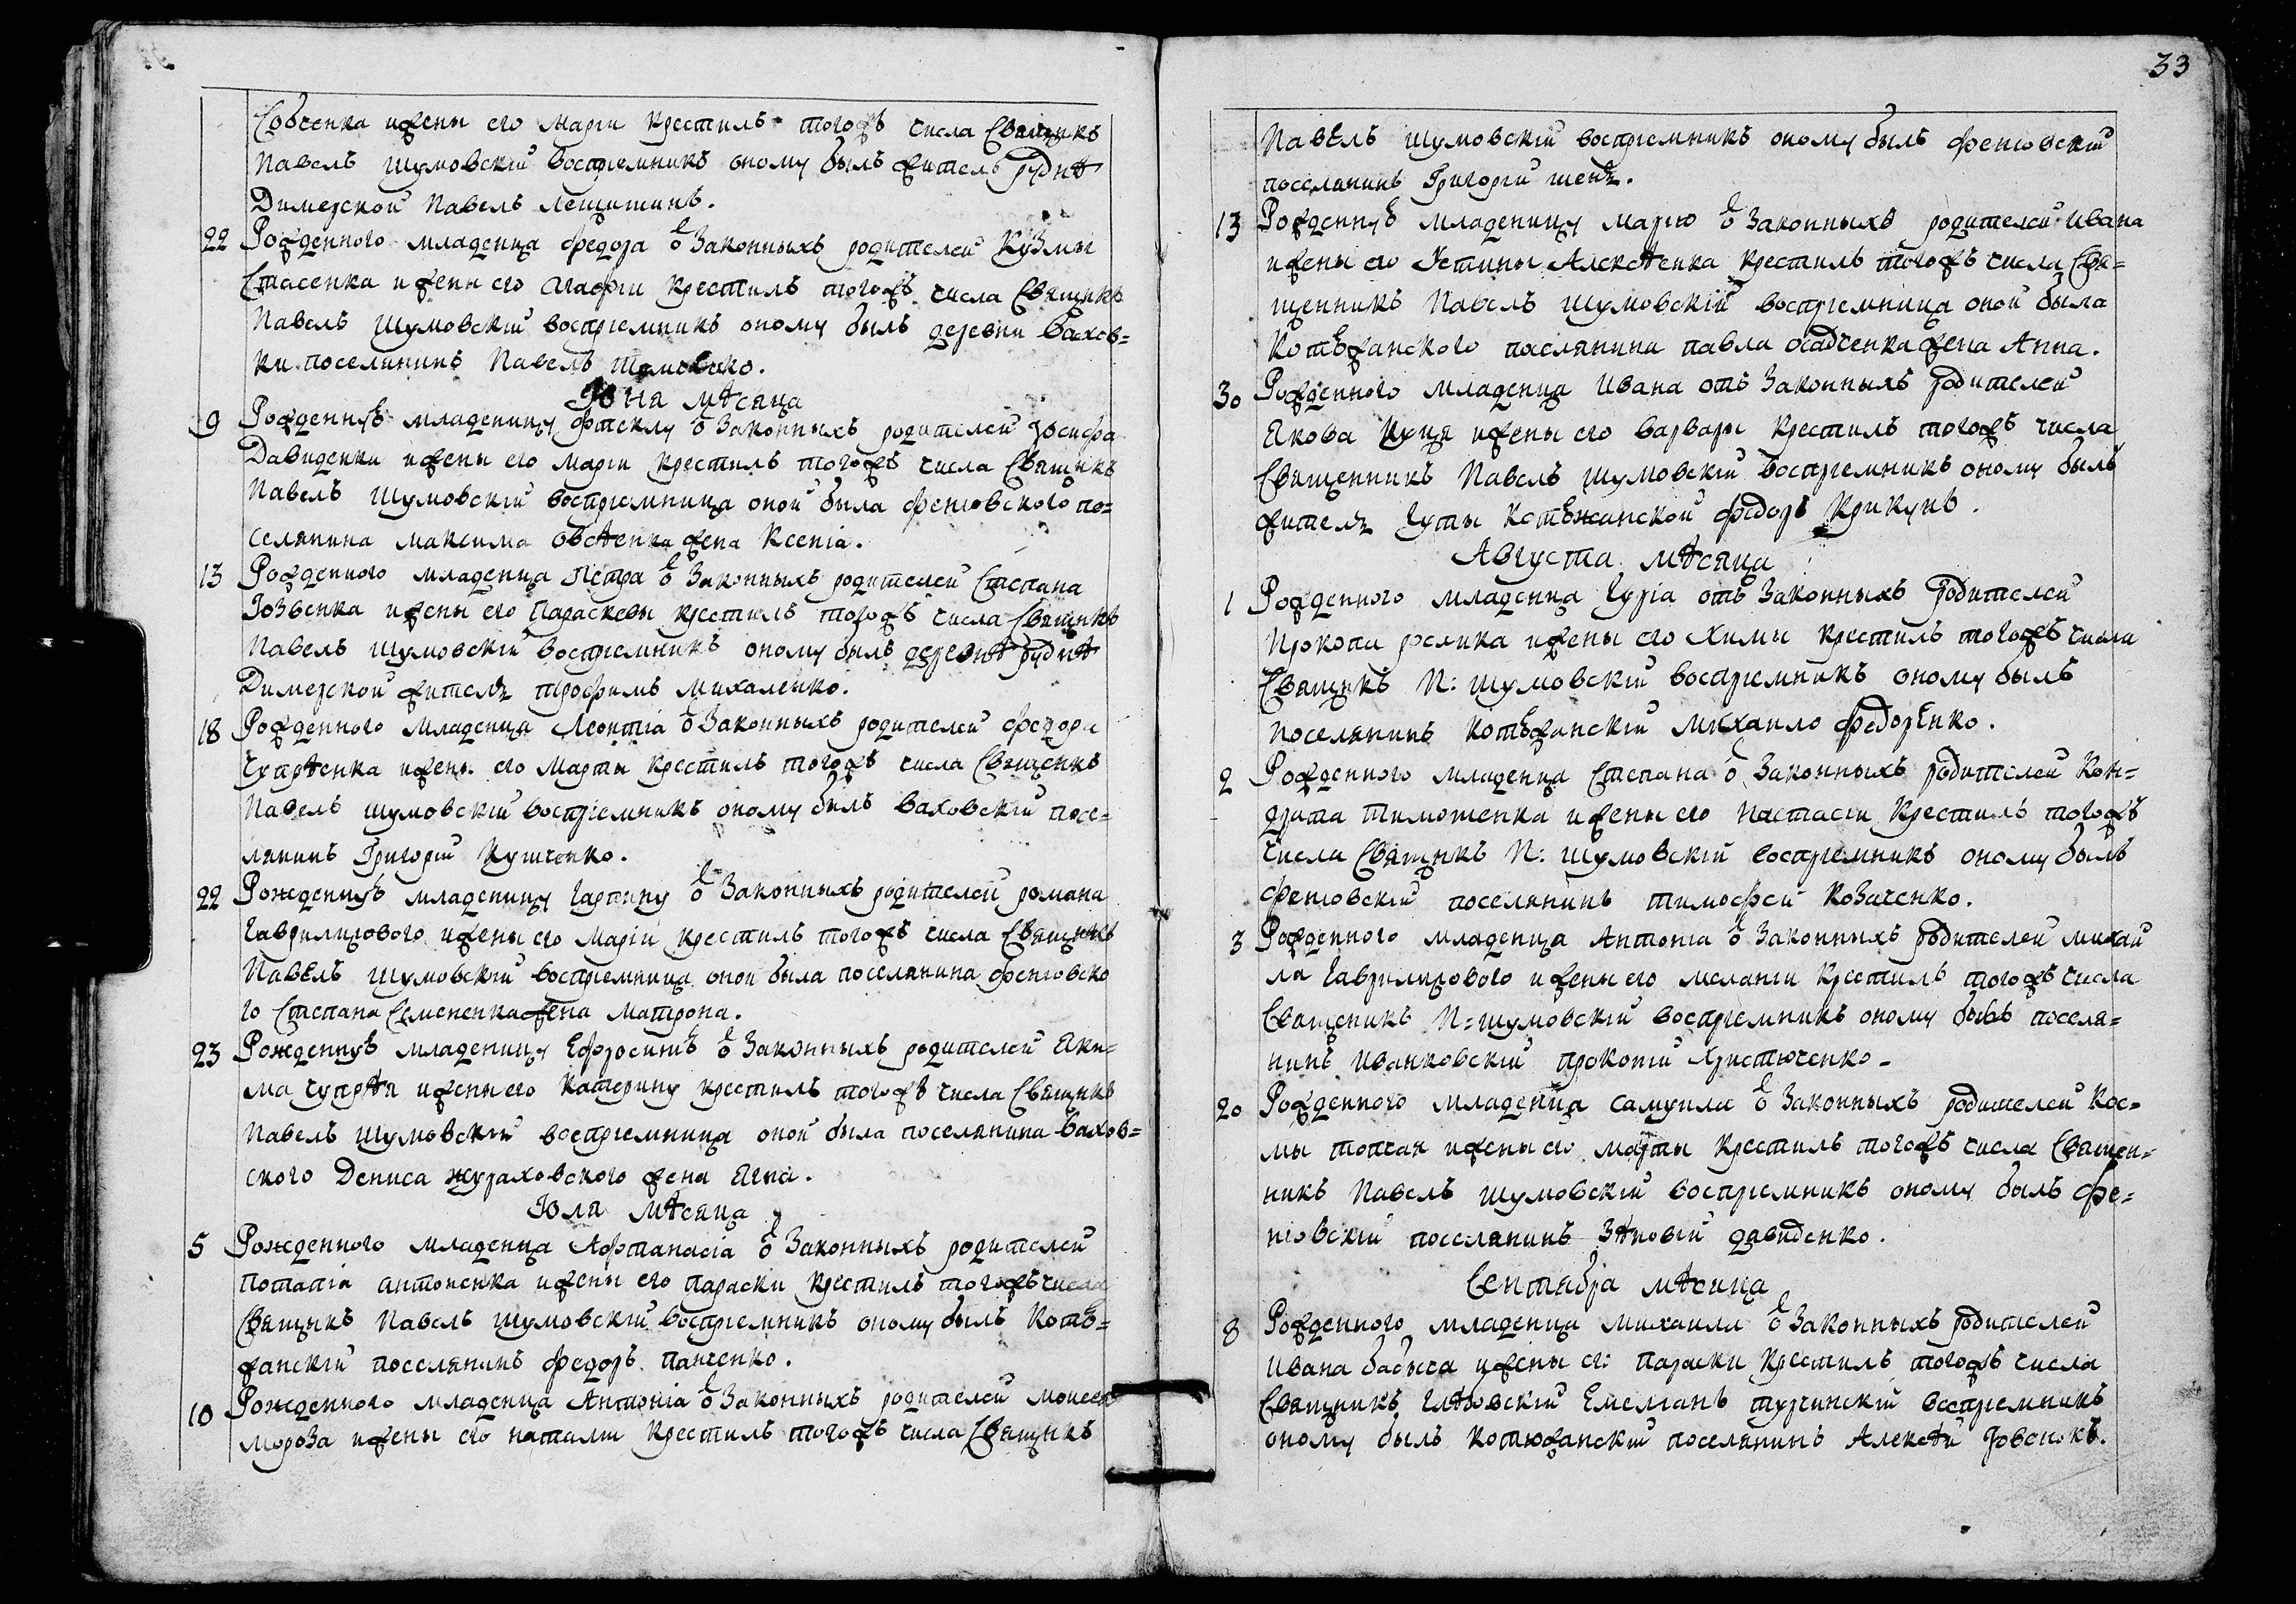 Собченка ижены его марии крестилъ тогожъ числа Свящнкъ
Павелъ Шумовскій воспріемникъ оному былъ житель руднѣ
Димерской Павелъ Лещишинъ.
22 Рожденного младенца федора ѿ Законныхъ родителей Кузмы
Стасенка ижены его агафіи крестилъ тогожъ числа Свящнкъ
Павелъ Шумовскій воспріемникъ оному былъ деревни Вахов=
ки поселянинъ Павелъ
Юня мѣсяца
9 Рожденнуѣ младеницу фтеклу ѿ Законныхъ родителей Іосифа
Давиденка ижены его марии крестилъ тогожъ числа Свящнкъ
Павелъ Шумовскій воспріемница оной была феневского по=
селянина максима овсѣенка жена Ксенія.
13 Рожденного младенца Петра ѿ Законныхъ родителей Степана
Іовенка ижены его Параскевы крестилъ тогожъ числа Свящнкъ
Павелъ Шумовскій воспріемникъ оному былъ деревнѣ руднѣ
Димерской житель трофимъ михаленко.
18 Рожденного младенца Леонтія ѿ Законныхъ родителей федора
Чупрѣенка ижены его Марты крестилъ тогожъ числа Священкъ
Павелъ Шумовскій воспріемникъ оному былъ ваховскій посе=
лянинъ Григорій Кущенко.
22 Рожденнуѣ младеницу Гарпину ѿ Законныхъ родителей романа
Гаврилидового ижены его Маріи крестилъ тогожъ числа Свящнкъ
Павелъ Шумовскій воспріемница оной была поселянина феневско
го Степана Семененка жена Матрона.
23 Рожденнуѣ младеницу Ефросинѣ ѿ Законныхъ родителей Яки=
ма чупрѣя ижены его Катерину крестилъ тогожъ числа Свящнкъ
Павелъ Шумовскій воспріемница оной была поселянина Вахов=
ского Дениса жураховского жена Ягна.
Юля Мѣсяца
5 Рожденного младенца Афтанасіа ѿ Законныхъ родителей
Потапія антоненка ижены его параски крестилъ тогожъ числа
Свящнкъ Павелъ Шумовскій воспріемникъ оному былъ Котѣ=
жанскій поселянинъ федоръ панченко.
10 Рожденного младенца Антонія ѿ Законныхъ родителей моисея
мороза ижены его наталіи крестилъ тогожъ числа Свящнкъ
33
Павелъ Шумовскій воспріемникъ оному былъ феневскій
поселянинъ Григорій шенъ.
13 Рожденнуѣ младеницу марію ѿ Законныхъ родителей Ивана
ижены его Устины Алексѣенка крестилъ тогожъ числа Свя=
щенникъ Павелъ Шумовскій воспріемница оной была
Котѣжанского паслянина павла осадченка жена Анна.
30 Рожденного младенца Ивана отъ Законныхъ родителей
Якова Куця ижены его варвары крестилъ тогожъ числа
Священникъ Павелъ Шумовскій воспріемникъ оному былъ
житель Гуты Котѣжанской федоръ Крикунъ.
Августа мѣсяца
1 Рожденного младенца Гурія отъ Законныхъ родителей
Прокопа релика ижены его Химы крестилъ тогожъ числа
Свящнкъ П: Шумовскій воспріемникъ оному былъ
поселянинъ Котѣжанскій михайло федорѣнко.
2 Рожденного младенца Степана ѿ Законныхъ родителей Кон=
драта тимошенка ижены его Настасіи крестилъ тогожъ
числа Свящнкъ П: Шумовскій воспріемникъ оному былъ
феневскій поселянинъ тимофей Козаченко.
3 Рожденного младенца Антонія ѿ Законныхъ родителей михай
ла Гаврилидового ижены его меланіи крестилъ тогожъ числа
Священикъ П=Шумовскій воспріемникъ оному былъ поселя=
нинъ Иванковскій прокопій Христюченко.
20 Рожденного младенца самуила ѿ Законныхъ родителей Кос=
мы топчая ижены его марты крестилъ тогожъ числа Священ=
никъ Павелъ Шумовскій воспріемникъ оному былъ фе=
невскій поселянинъ Зѣновій давиденко.
Сентября мѣсяца
8 Рожденного младенца михаила ѿ Законныхъ родителей
Ивана бабыча ижены ег: параски крестилъ тогожъ числа
Свящникъ Емеліанъ турчинскій воспріемникъ
оному былъ котюжанскій поселянинъ Алексѣй Іовенкъ.